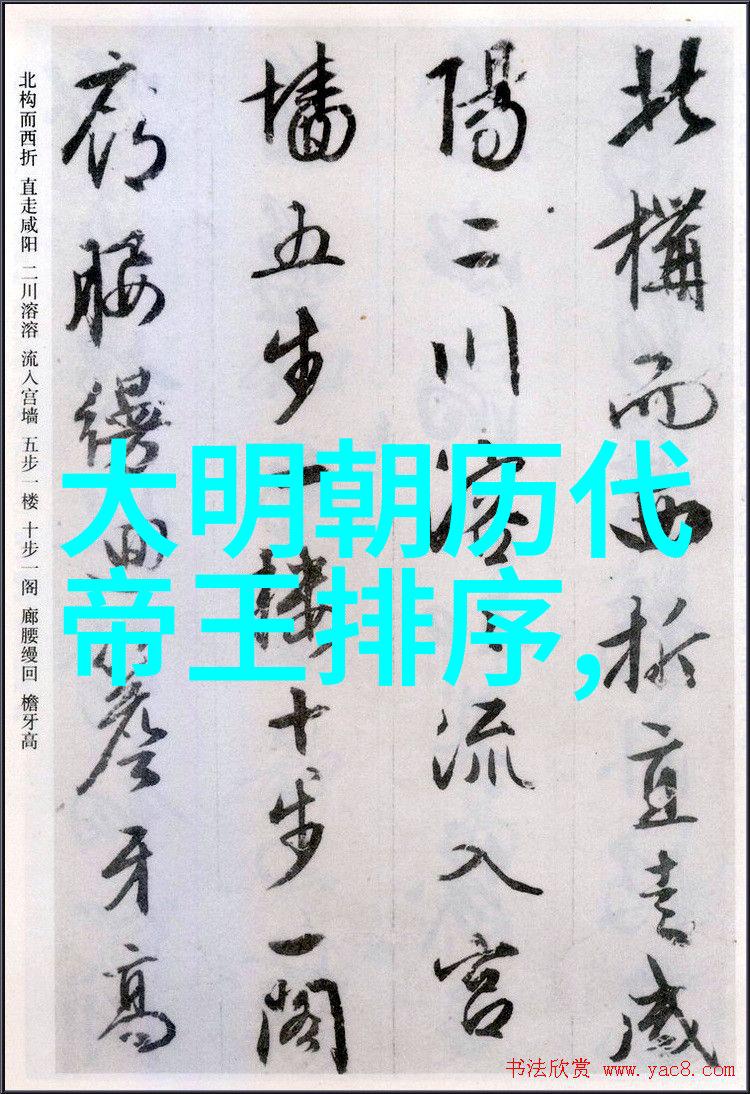 北構而西折直走咸
陽二川溶〻流入宫
墙五步一楼十步一閣
廊腰縵迴簷牙高
北构而西折 直走咸阳 二川溶溶 流入宫墙 五步一楼 十步一阁 廊腰缦回 檐牙高
大明朝历代
帝王排序,
书法欣赏 www.yac8.com